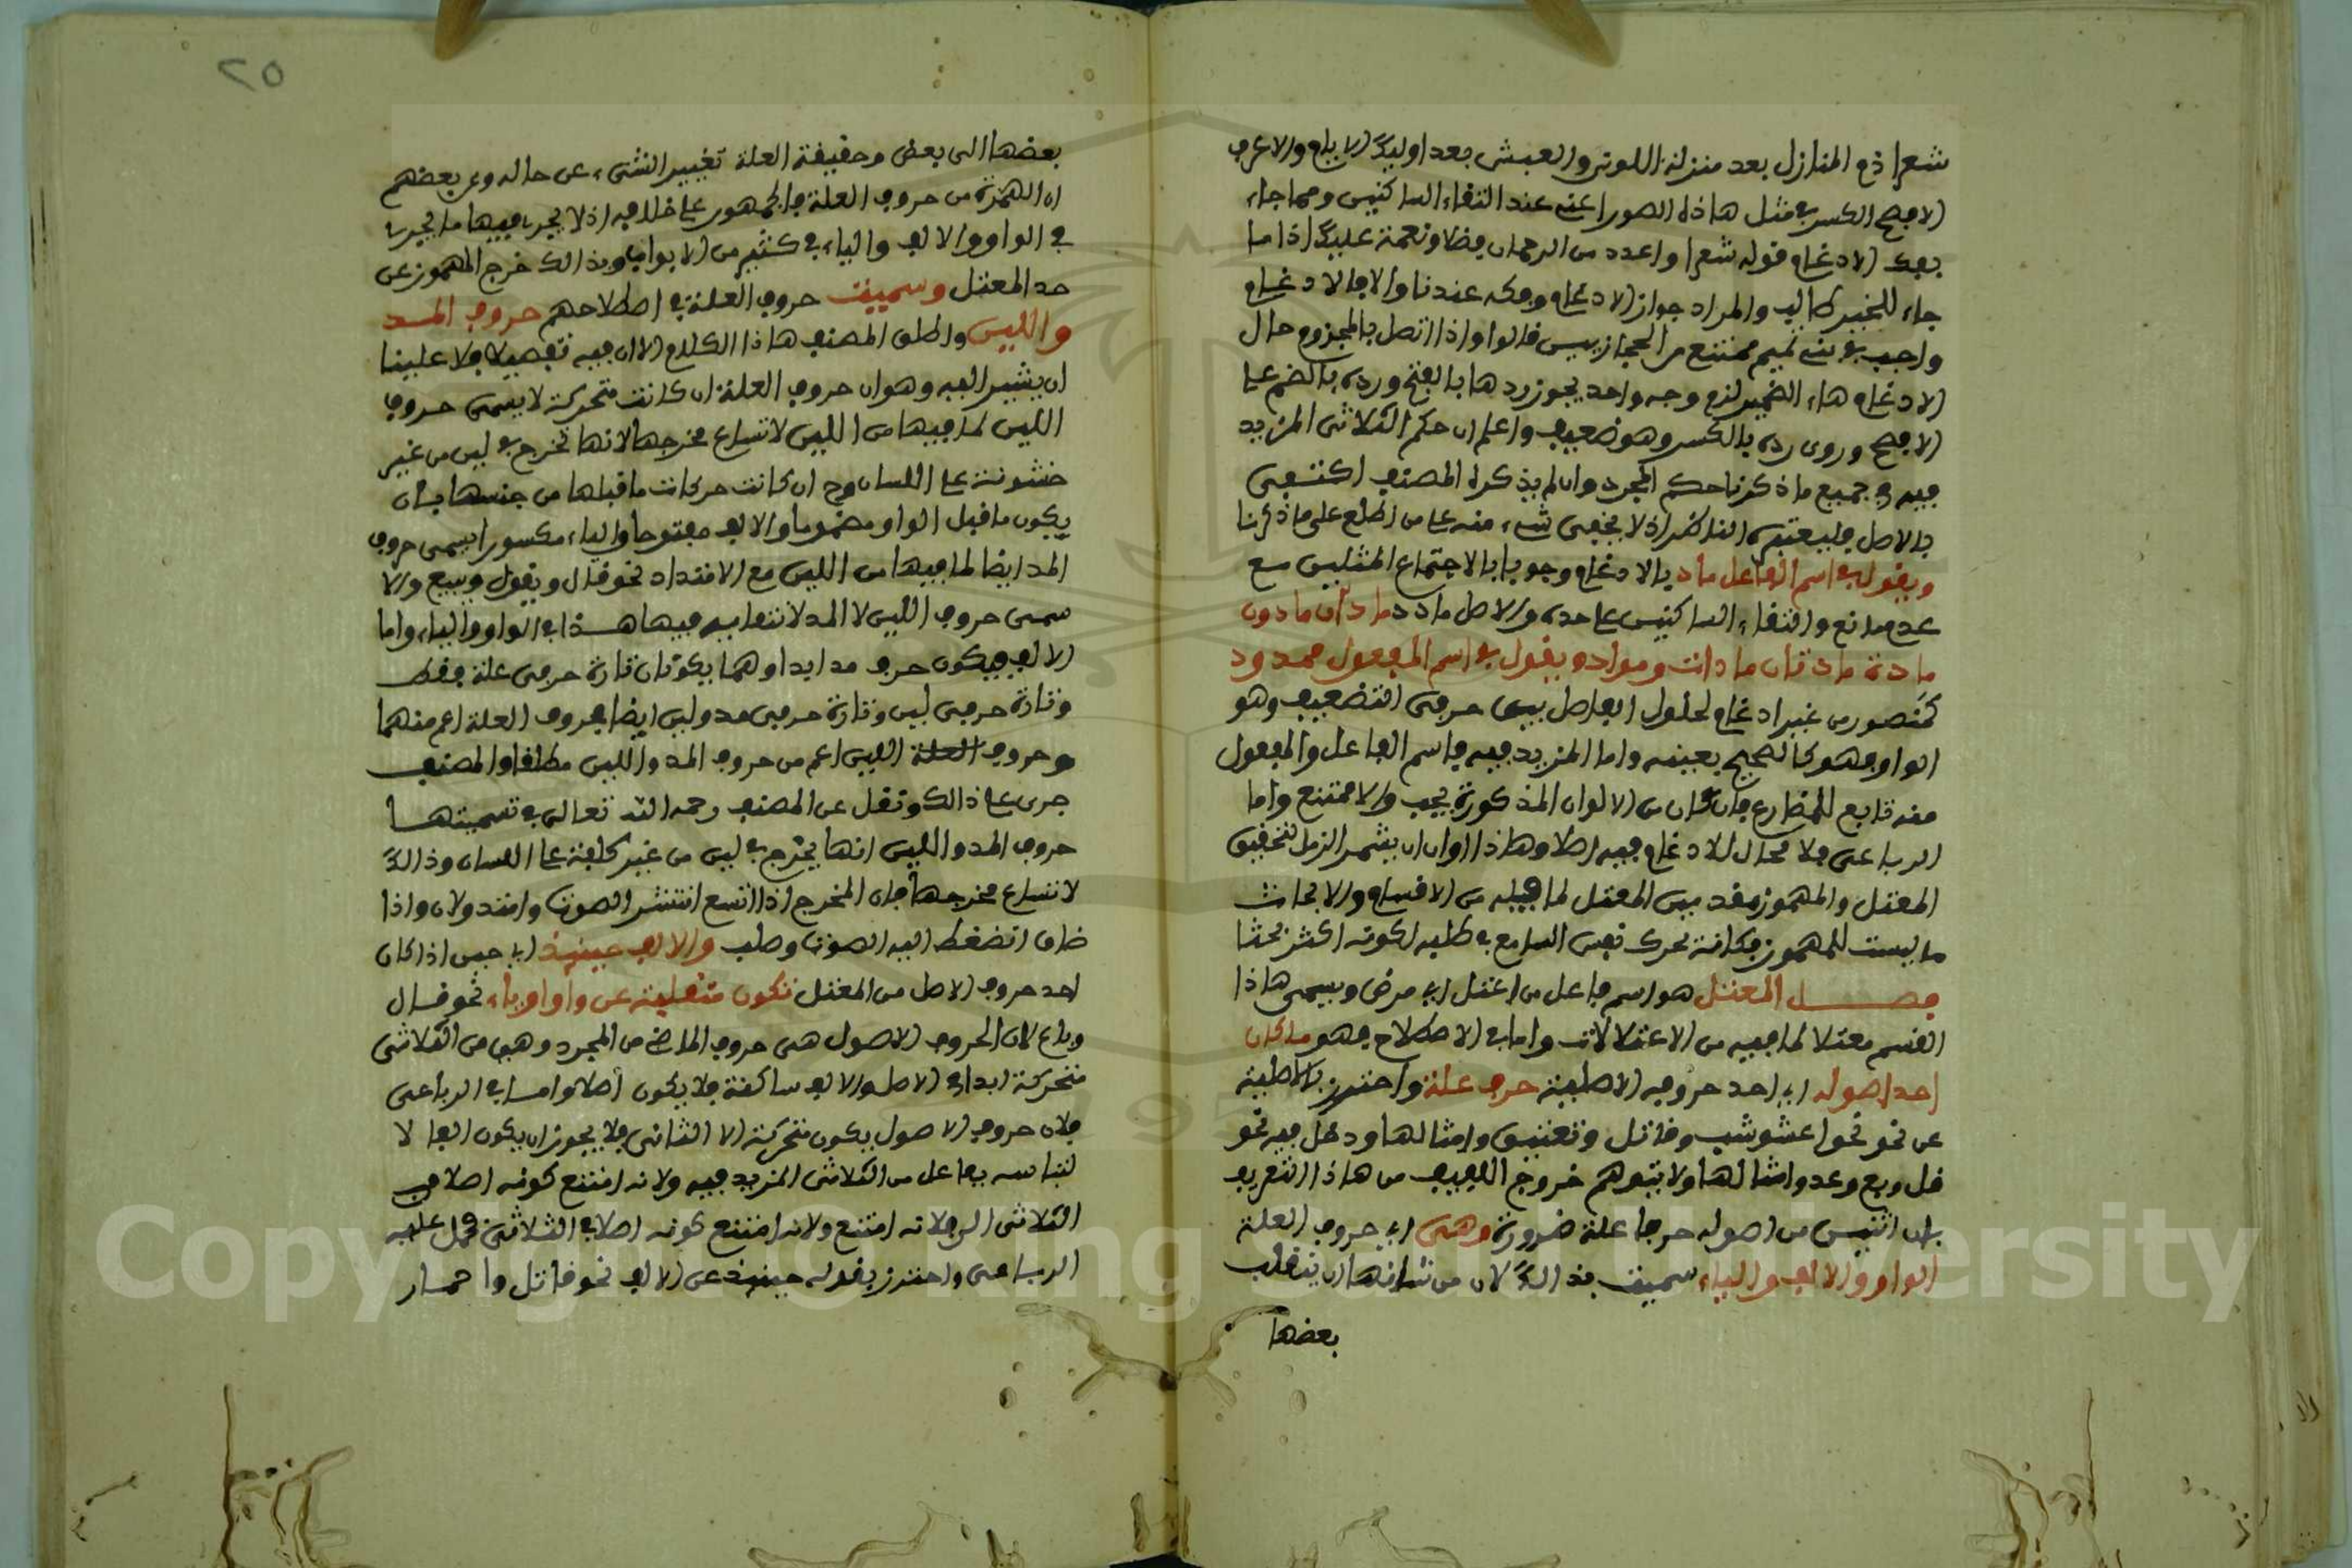 شعرا ذم المنازل بعد منزلة اللوى والعيش بعد اوليك الايام والاعرف
الافصح الكسر في مثل هاذه الصورا عنه عند التقاء الساكنين ومما جاء
بفك الادغام قوله شعرا واعدد من الرحمان فضلا ونعمة عليك اذا ما
جاء للخير طالب والمراد جواز الادغام وفكه عندنا والا فالادغام
واجب في بني تميم ممتنع من الحجازيين قالوا واذا اتصل بالمجزوم حال
الادغام هاء الضمير لزم وجه واحد يجوز ردها بالفتح ورده بالضم على
الافصح وروى رده بالكسر وهو ضعيف واعلم ان حكم الثلاثى المزيد
فيه في جميع ما ذكرنا حكم المجرد وان لم يذكره المصنف اكتفى
بالاصل فليعتبره الناظر اذ لا يخفى شيء منه على من اطلع على ما ذكرنا
ويقول في اسم الفاعل ماد بالادغام وجوبا بالاجتماع المثلين مع
عدم مانع والتقاء الساكنين على حده والاصل مادد ماد مادان مادون
مادة مادتان مادات ومواد ويقول في اسم المفعول ممدود
كمنصور من غير ادغام لحلول الفاصل بين حرفى التضعيف وهو
الواو فهو كالصحيح بعينه واما المزيد فيه فاسم الفاعل والمفعول
منه تابع للمضارع فان كان من الالوان المذكورة يجب والا ممتنع واما
الرباعى فلا مجال للادغام فيه اصلا وهاذا اوان ان يشمر الذيل لتحقيق
المعتل والمهموز فقد بين المعتل لما فيه من الاقسام والابحاث
ما ليست للمهموز فكانه تحرك نفس السامع في طلبه لكونه اكثر بحثا
فصل المعتل هو اسم فاعل من اعتل اي مرض ويسمى هاذا
القسم معتلا لما فيه من الاعتلالات واما في الاصطلاح فهو ما كان
احد اصوله اي احد حروفه الاصلية حرف علة واحترز بالاصلية
عن نحو نحو اعشوشب وقاتل وتعنيق وامثالها ودخل فيه نحو
قل وبع وعد وامثالها ولا يتوهم خروج اللفيف من هاذا التعريف
بان اثنين من اصوله حرفا علة ضرورة وهى اي حروف العلة
الواو والالف والياء سميت بذالك لان من شانها ان ينقلب
بعضها
٢٥
بعضها الى بعض وحقيقة العلة تغيير الشىء عن حاله وعن بعضهم
ان الهمزة من حروف العلة والجمهور على خلافه اذ لا يجري فيها ما يجري
في الواو والالف والياء في كثير من الابواب وبذالك خرج المهموز عن
حد المعتل وسميت حروف العلة في اصطلاحهم حروف المد
واللين واطلق المصنف هاذا الكلام الا ان فيه تفصيلا فلا علينا
ان يشير اليه وهو ان حروف العلة ان كانت متحركة لا يسمى حروف
اللين لما فيها من اللين لاتساع مخرجها لانها تخرج في لين من غير
خشونة على اللسان وح ان كانت حركات ما قبلها من جنسها بان
يكون ما قبل الواو مضموما والالف مفتوحا والياء مكسورا يسمى حروف
المد ايضا لما فيها من اللين مع الامتداد نحو قال ويقول ويبيع والا
سمى حروف اللين لا المد لانتفايه فيها هذا في الواو والياء واما
الالف فيكون حرف مد ابدا وهما يكونان تارة حرفى علة فقط
وتارة حرفى لين وتارة حرفى مد ولين ايضا فحروف العلة اعم منهما
وحروف العلة اللين اعم من حروف المد واللين مطلقا والمصنف
جرى على ذالك ونقل عن المصنف رحمه الله تعالى في تسميتها
حروف المد واللين انها يخرج في لين من غير كلفة على اللسان وذالك
لاتساع مخرجها فان المخرج اذا اتسع انتشر الصوت وامتد ولان واذا
ضاق انضغط اليه الصوت وصلب والالف حينيذ اي حين اذا كان
احد حروف الاصل من المعتل تكون منقلبة عن واو او ياء نحو قال
وباع لان الحروف الاصول هى حروف الماضى من المجرد وهى من الثلاثى
متحركة ابدا في الاصل والالف ساكنة فلا يكون اصلا واما في الرباعى
فلان حروف الاصول يكون متحركة الا الثانى فلا يجوز ان يكون الفا لا
لتباسه بفاعل من الثلاثى المزيد فيه ولانه امتنع كونه اصلا في
الثلاثى امتنع ولانه امتنع كونه اصلا في الثلاثى فحمل عليه
الرباعى واحترز بقوله حينيذ عن الالف نحو قاتل واحمار